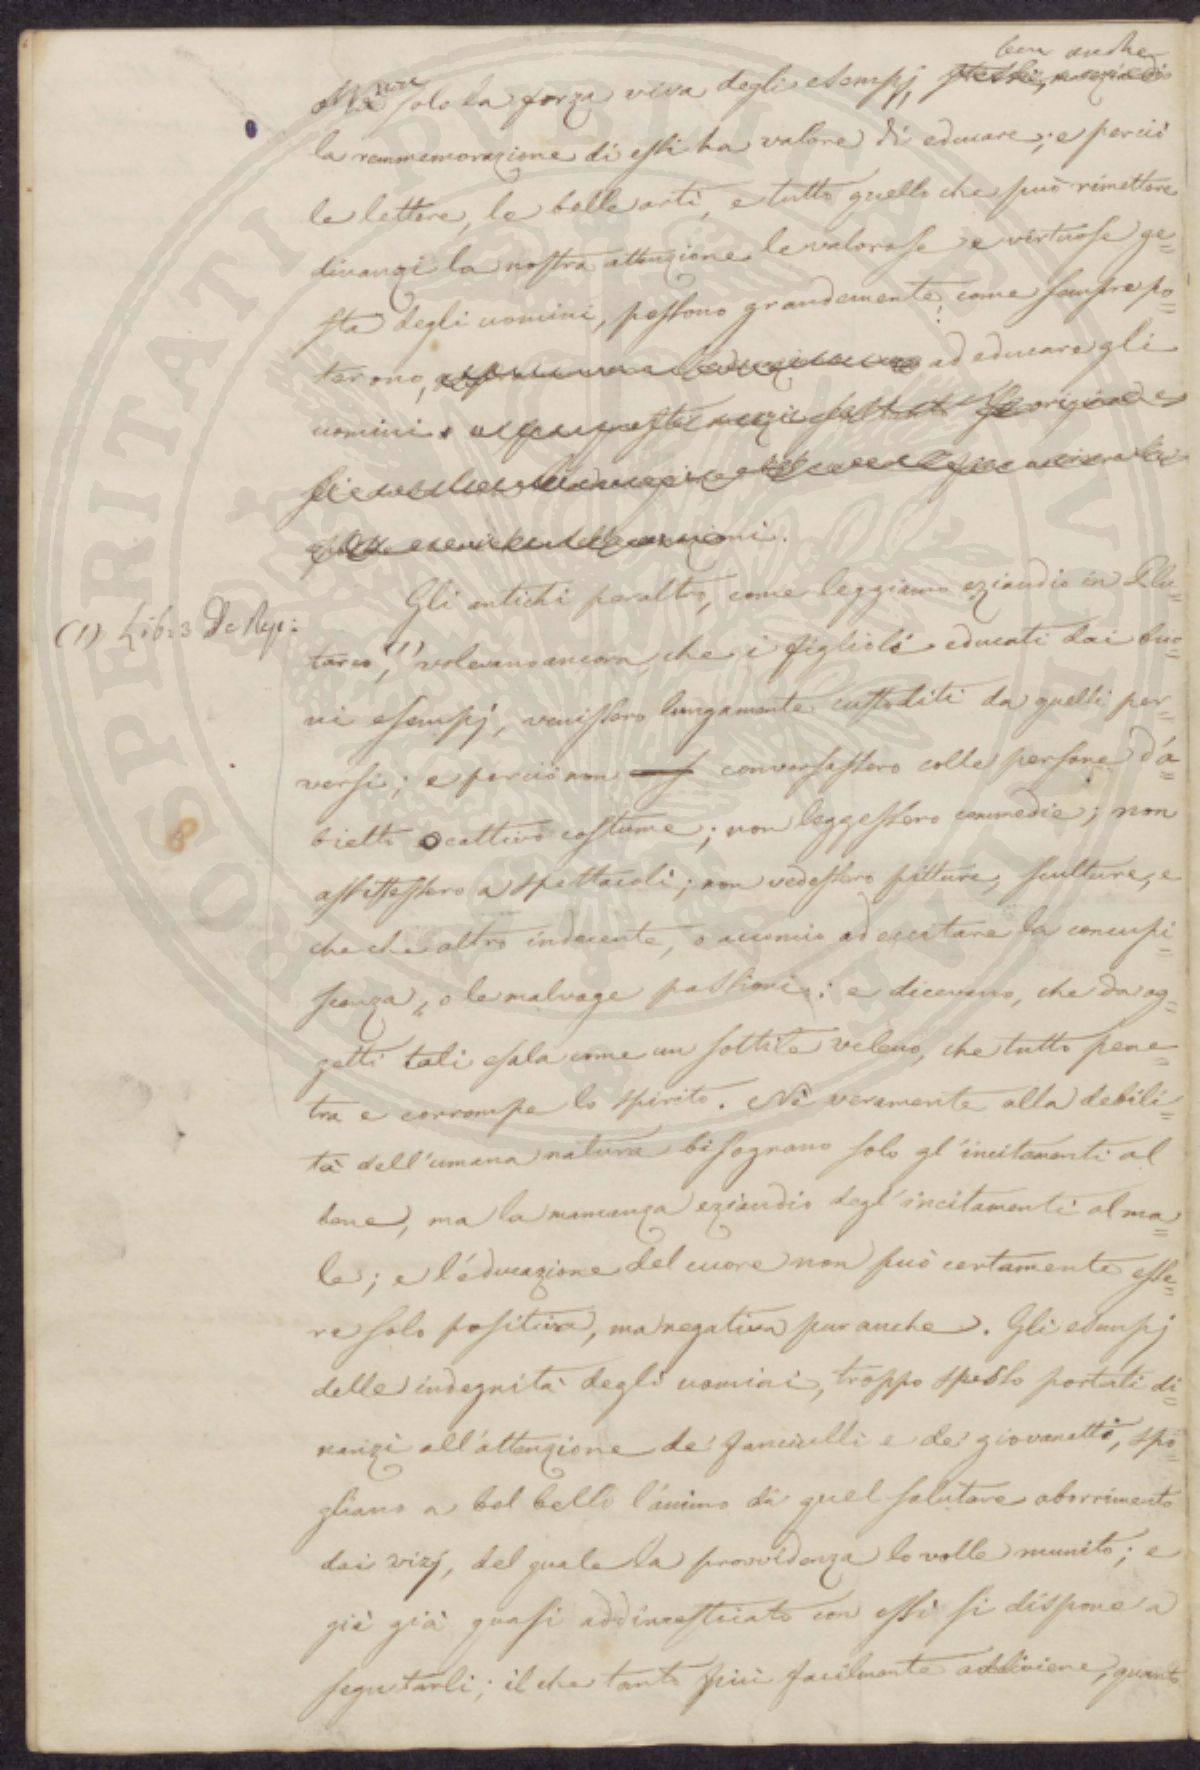 ben anche
Ma non solo la forza viva degli esempj,
la rammemorazione di essi ha valore di educare; e perciò
le lettere, le belle arti, e tutto quello che può rimettere
dinanzi la nostra attenzione le valorose e virtuose ge=
sta degli uomini, possono grandemente, come sempre po=
terono, ad educare gli
uomini.
Gli antichi peraltro, come leggiamo eziandio in Plu=
(1) Lib: 3 De Rep:
tarco,(1) volevano ancora, che i figlioli educati dai buo=
ni esempj, venissero lungamente custoditi da quelli per=
versi; e perciò non conversassero colle persone d'a=
bietto o cattivo costume; non leggessero commedie; non
assistessero a spettacoli; non vedessero pitture, sculture, e
che che altro indecente, o acconcio ad eccitare la concupi=
scenza, o le malvage passioni: e dicevano, che da og=
getti tali esala come un sottile veleno, che tutto pene=
tra e corrompe lo spirito. Nè veramente alla debili=
tà dell'umana natura bisognano solo gl'incitamenti al
bene, ma la mancanza eziandio degl'incitamenti al ma=
le; e l'educazione del cuore non può certamente esse=
re solo positiva, ma negativa pur anche. Gli esempj
delle indegnità degli uomini, troppo spesso portati di=
nanzi all'attenzione de' fanciulli e de' giovanetti, spo=
gliano a bel bello l'animo di quel salutare aborrimento
dai vizj, del quale la provvidenza lo volle munito; e
già già quasi addimesticato con essi si dispone a
seguitarli; il che tanto più facilmente addiviene, quanto
PROSPERITATI PUBLICAE